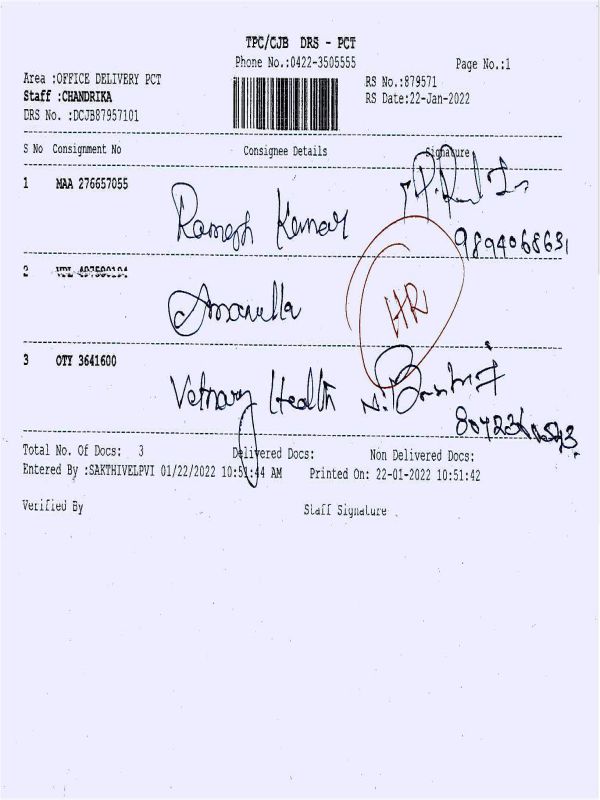 TPC/CJB DRS - PCT
Phone No.:0422-3505555
Page No.:1
Area :OFFICE DELIVERY PCT
RS No.:879571
Staff :CHANDRIKA
RS Date:22-Jan-2022
DRS No. :DCJB87957101
S No Consignment No Consignee Details Signature
1 MAA 276657055
Ramesh Kumar
9894068631
2
Amanulla
HR
3 OTY 3641600
Vetnary Health
Total No. Of Docs: 3 Delivered Docs: Non Delivered Docs:
Entered By :SAKTHIVELPVI 01/22/2022 10:51:44 AM Printed On: 22-01-2022 10:51:42
Verified By Staff Signature